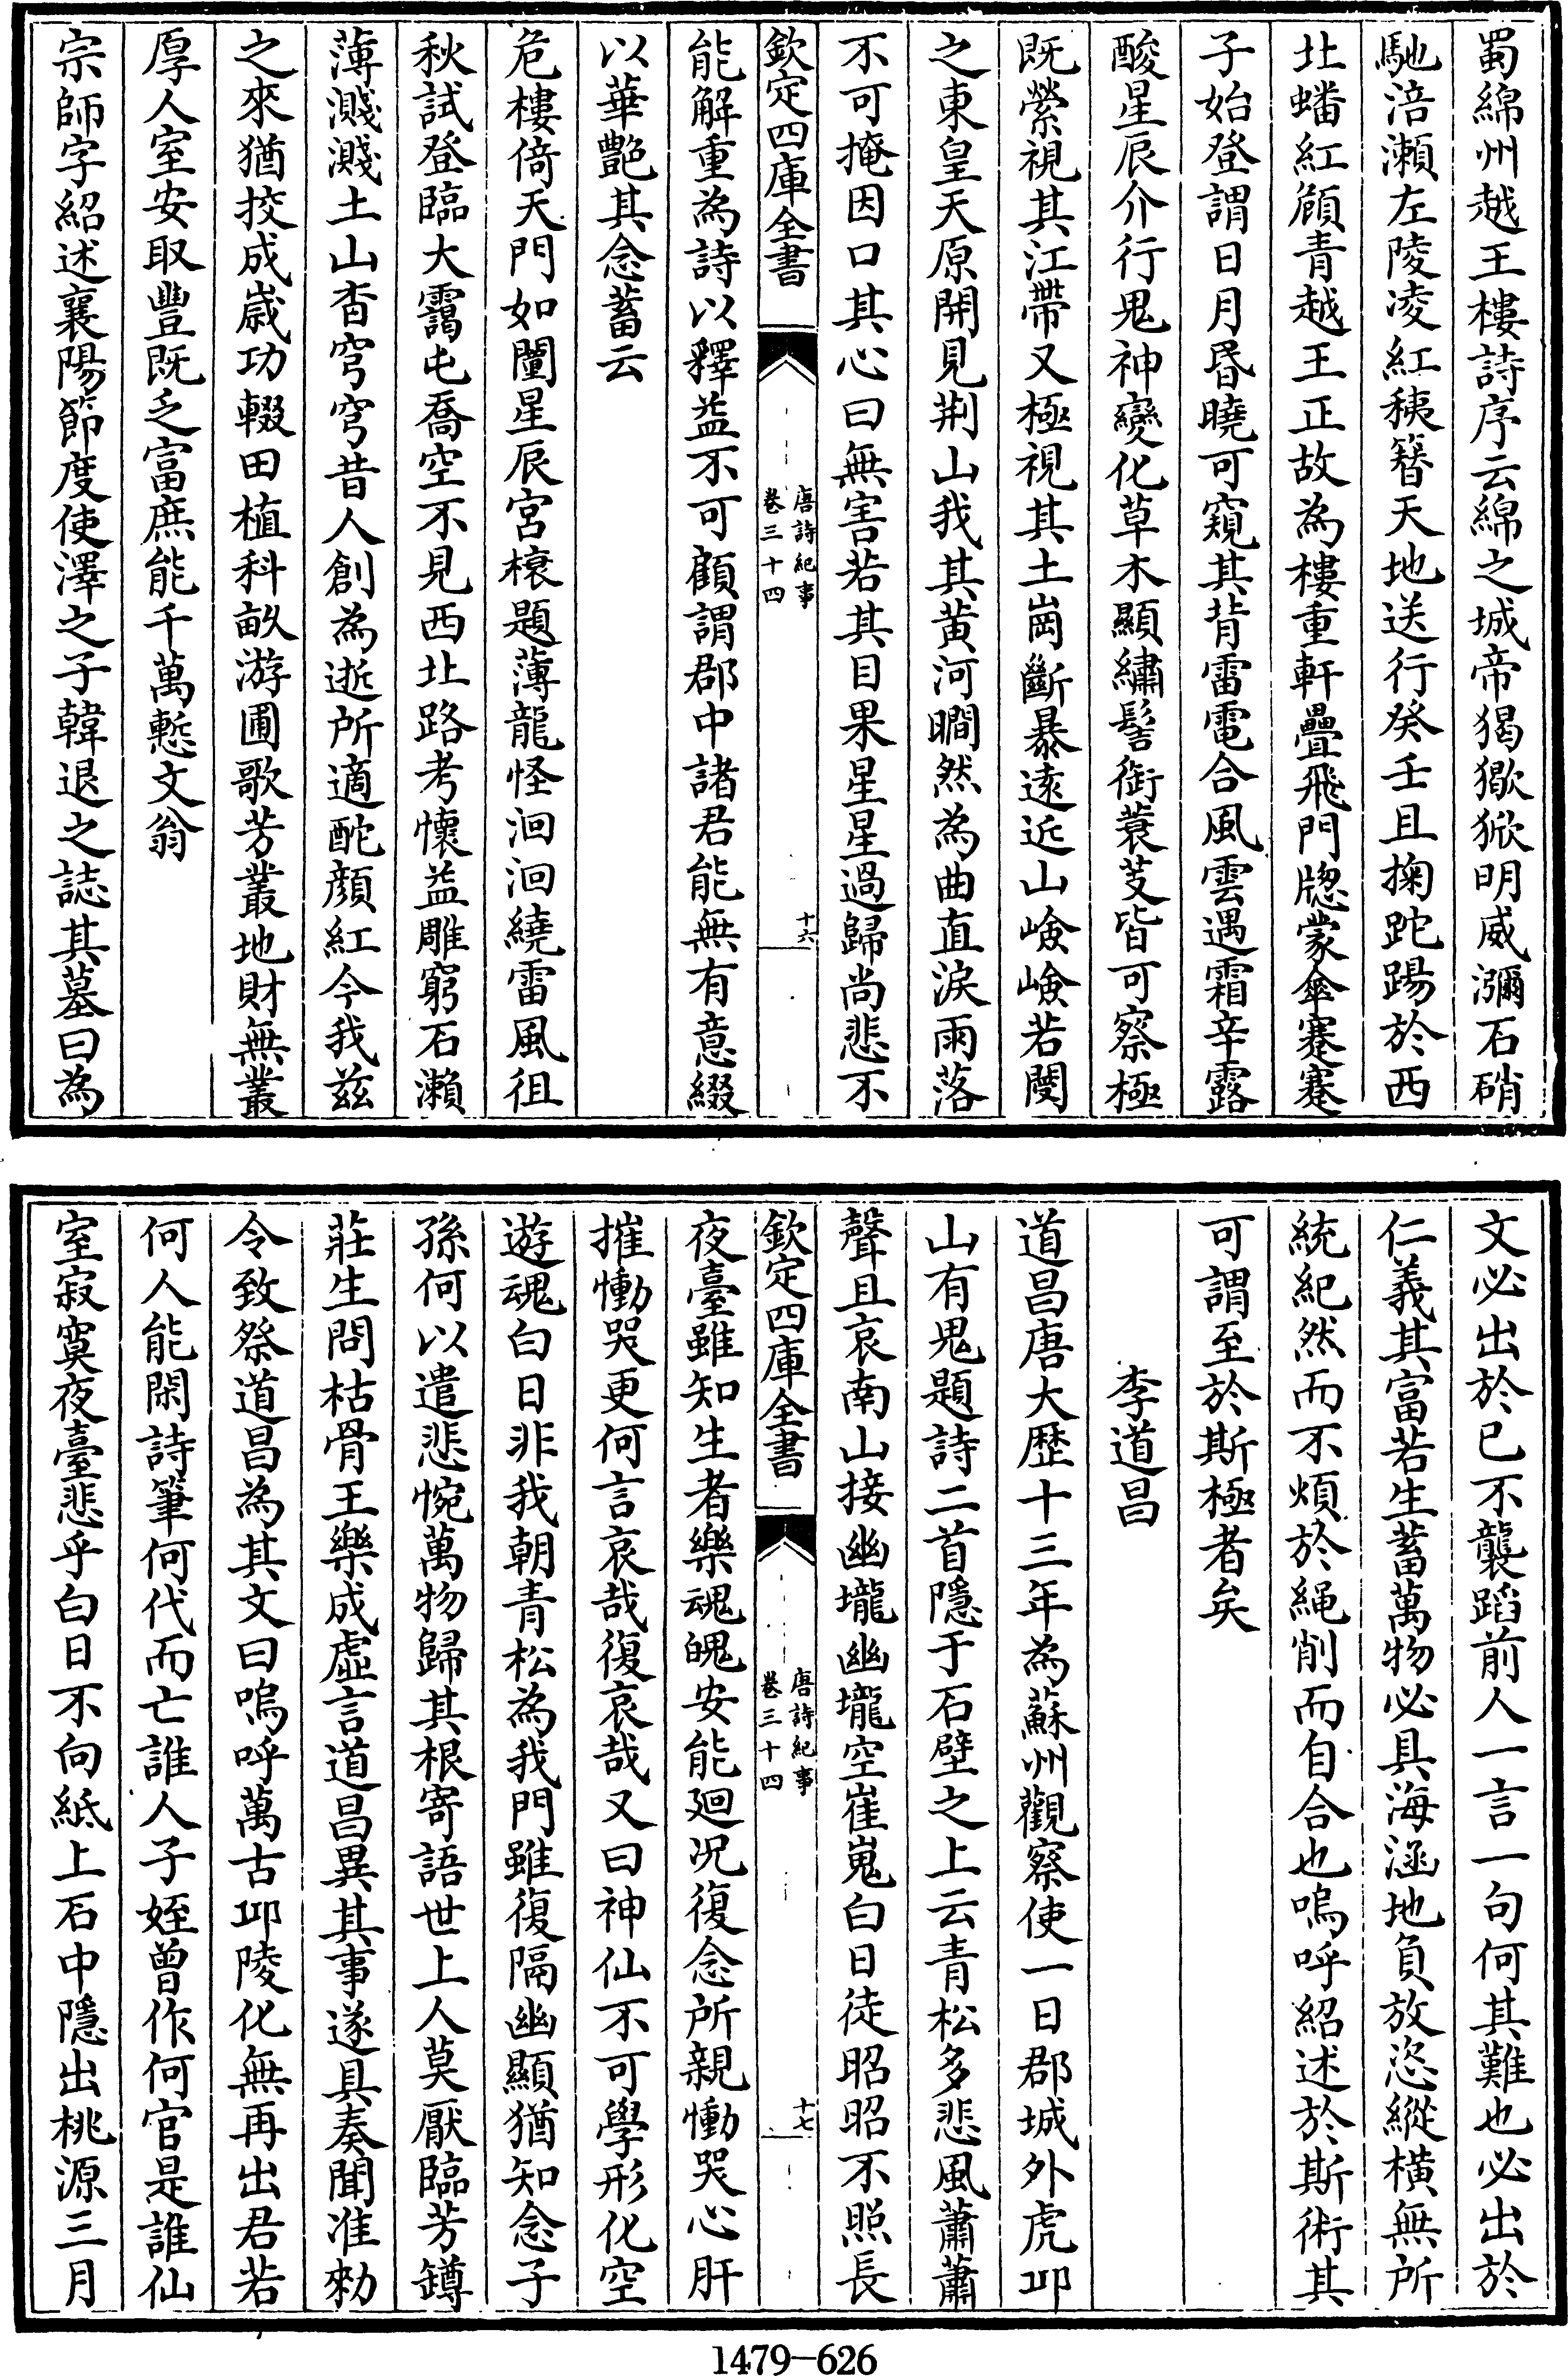 蜀綿州越王樓詩序云綿之城帝猲獥猌明威瀰石硝
馳涪瀨左陵凌紅䄺簮天地送行癸壬且掬跎踼於西
北蟠紅顧青越王正故為樓重軒疊飛門牎蒙傘蹇蹇
子始登謂日月昏曉可窺其背雷電合風雲遇霜辛露
酸星辰介行鬼神變化草木顯繡髻銜蓑芰皆可察極
既縈視其江帶又極視其土崗斷暴遠近山嶮嶮若閔
之東皇天原開見荆山我其黄河瞯然為曲直淚雨落
不可掩因口其心曰無害若其目果星星過歸尚悲不
欽定四庫全書
唐詩紀事
卷三十四
十六
能解重為詩以釋益不可顧謂郡中諸君能無有意綴
以華艷其念蓄云
危樓倚天門如闉星辰宮榱題薄龍怪洄洄繞雷風徂
秋試登臨大靄屯喬空不見西北路考懷益雕窮石瀨
薄濺濺土山杳穹穹昔人創為逝所適酡顔紅今我兹
之來猶挍成嵗功輟田植科畝游圃歌芳叢地財無叢
厚人室安取豐既乏富庶能千萬慙文翁
宗師字紹述襄陽節度使澤之子韓退之誌其墓曰為
文必出於已不襲蹈前人一言一句何其難也必出於
仁義其富若生蓄萬物必具海涵地負放恣縱橫無所
統紀然而不煩於䋲削而自合也嗚呼紹述於斯術其
可謂至於斯極者矣
李道昌
道昌唐大歴十三年為蘇州觀察使一日郡城外虎邱
山有鬼題詩二首隱于石壁之上云青松多悲風蕭蕭
聲且哀南山接幽壠幽壠空崔嵬白日徒昭昭不照長
欽定四庫全書
唐詩紀事
卷三十四
十七
夜臺雖知生者樂魂魄安能廻况復念所親慟哭心肝
摧慟哭更何言哀哉復哀哉又曰神仙不可學形化空
遊魂白日非我朝青松為我門雖復隔幽顯猶知念子
孫何以遣悲惋萬物歸其根寄語世上人莫厭臨芳罇
莊生問枯骨王樂成虛言道昌異其事遂具奏聞准勅
令致祭道昌為其文曰嗚呼萬古邱陵化無再出君若
何人能閑詩筆何代而亡誰人子姪曾作何官是誰仙
室寂寞夜臺悲乎白日不向紙上石中隱出桃源三月
1479-626